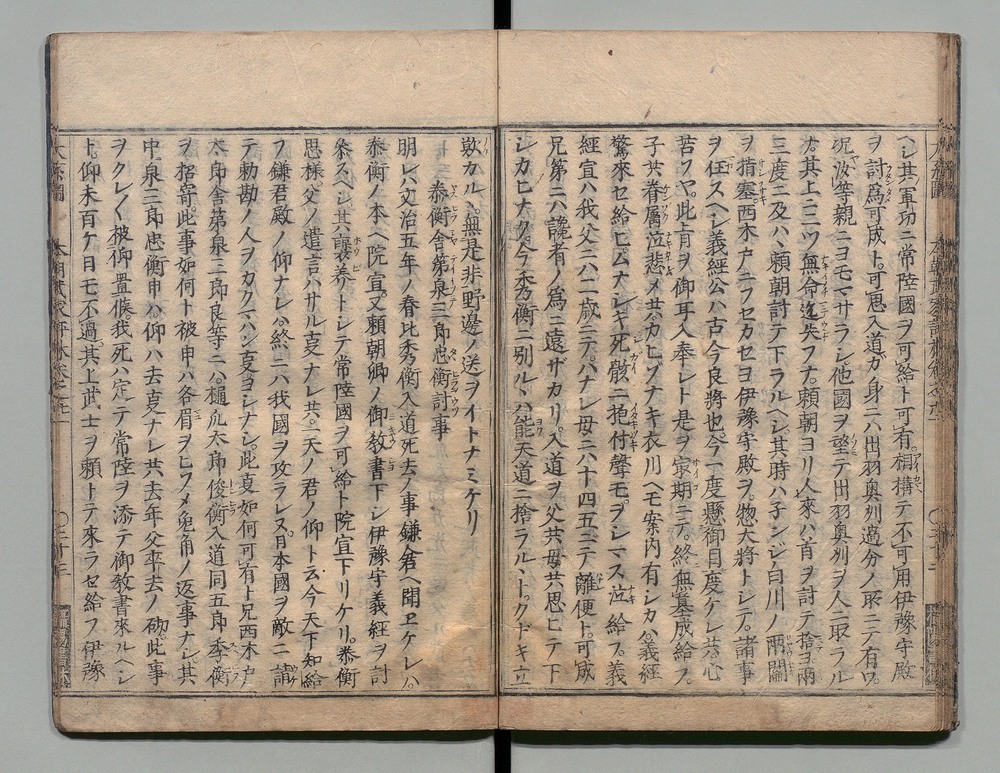 ヘシ其軍功ニ常陸國ヲ可給ト可有相構テ不可用伊豫守殿
ヲ討為可成ト可思入道ガ身ニハ出羽奥州過分ノ所ニテ有ワ
況汝等親ニヨモマサラシ他國ヲ望テ出羽奥刕ヲ人ニ取ラル
ナ其上ニ三ツ無命迄失フナ頼朝ヨリ人來ハ首ヲ討テ捨ヨ兩
三度ニ及ハヽ頼朝討テ下ラルヘシ其時ハ子ンジユ白川ノ兩關
ヲ指塞西木戸ニフセカセヨ伊豫守殿ヲ惣大將トシテ諸事
ヲ任スヘシ義經公ハ古今ノ良將也今一度懸御目度ケレ共心
苦フヤ此旨ヲ御耳入奉レト是ヲ最期ニテ終無墓成給フ
子共眷属泣悲メ共カヒゾナキ衣川ヘモ案内有シカハ義經
驚來セ給ヒムナシキ死骸ニ抱付聲モヲシマス泣給フ義
經宣ハ我父ニハ二歳ニテハナレ母ニハ十四五ニテ離便ト可成
兄第ニハ讒者ノ為ニ遠ザカリ入道ヲ父共母共思ヒテ下
シカヒナク今秀衡ニ別ルヽハ能天道ニ捨ラルヽトクドキ立
歎カル無是非野邊ノ送ヲイトナミケリ
泰衡舎第泉三郎忠衡討事
明レハ文治五年ノ春比秀衡入道死去ノ事鎌倉ヘ聞ヱケレハ
泰衡ノ本ヘ院宣又頼朝卿ノ御教書下シ伊豫守義經ヲ討
参スヘシ其褒美トシテ常陸國ヲ可給ト院宣下リケリ泰衡
思様父ノ遺言ハサル事ナレ共一天ノ君ノ仰ト云今天下知給
フ鎌君殿ノ仰ナレハ終ニハ我國ヲ攻ラレス日本國ヲ敵ニ請
テ勅勘ノ人ヲカクマハン事ヨシナシ此事如何可有ト兄西木戸
太郎舎第泉三郎良等ニハ樋爪太郎俊衡入道同五郎季衡
ヲ招寄此事如何ト被申ハ各眉ヲヒソメ兎角ノ返事ナシ其
中ニ泉三郎忠衡申ハ仰ハ去事ナレ共去年父卒去ノ砌此事
ヲクレ〱被仰置候我死ハ定テ常陸ヲ添テ御教書來ルヘシ
ト仰未百ケ日モ不過其上武士ヲ頼トテ來ラセ給フ伊豫